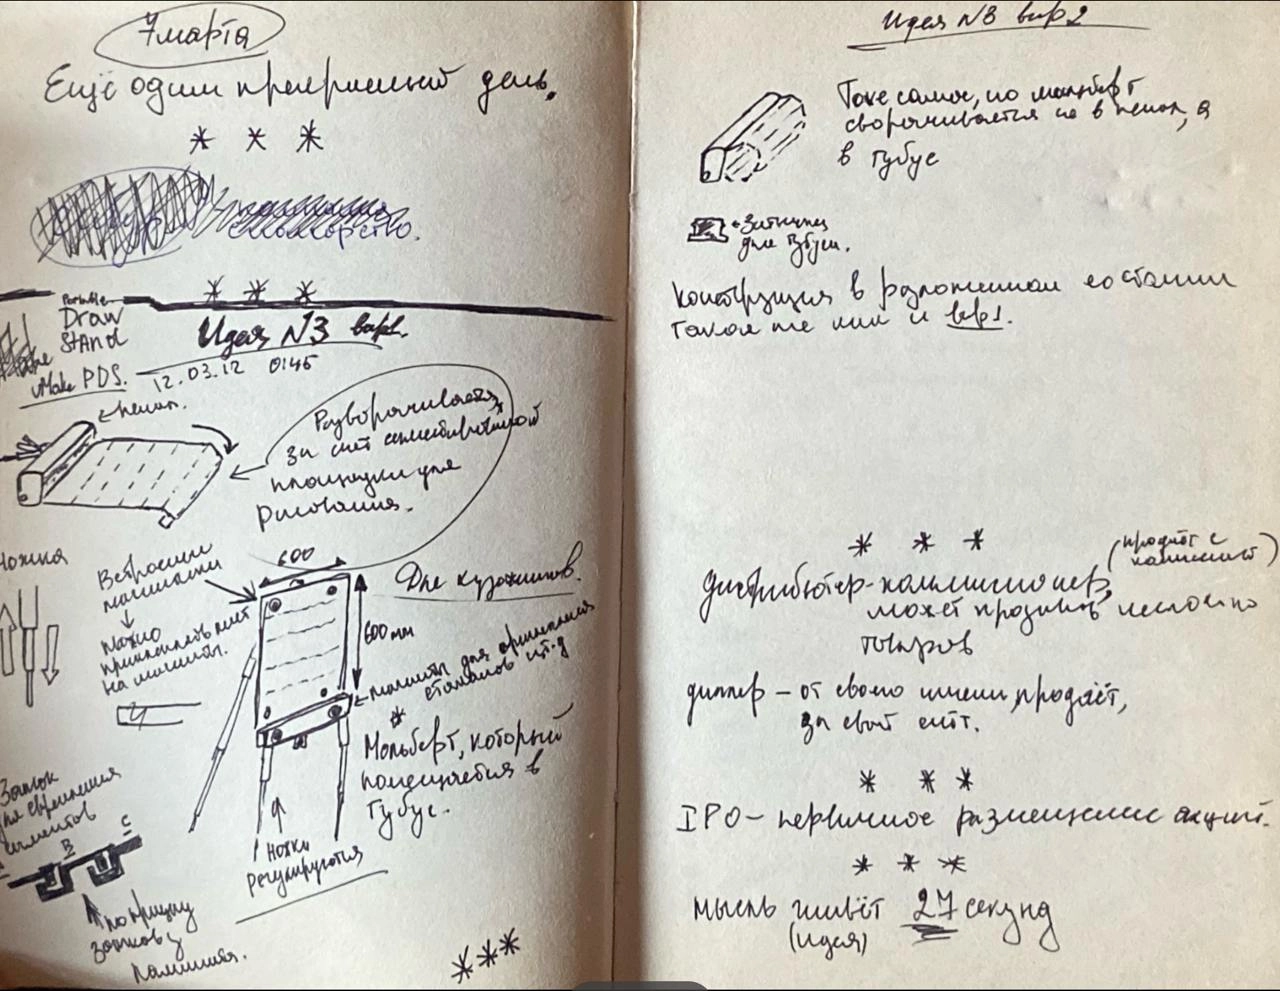 7 марта
Ещё один прекрасный день.
* * *
* * *
Portable
Draw
Stand
Make PDS.
Идея N3 вар1.
12.03.12 0145
пенал.
Разворачивается
за счёт
площадки для
рисования.
ножка
Встроенны
магниты
можно
прикреплять лист
на магниты.
600
600 мм
Для художников.
магниты для крепления
стаканов и т.д
* Мольберт, который
помещается в
тубус.
Ножки
регулируются
Замок
для скрепления
элементов
B
C
по принципу
замков у
ламината.
* * *
Идея N3 вар2
Тоже самое, но мольберт
сворачивается не в пенал, а
в тубус
Затычка
для тубуса.
Конструкция в разложенном состоянии
такая же как и вар1.
* * *
(продаёт с
дистрибьютер - коммиссионер,
может продавать несколько
товаров
диллер - от своего имени продаёт,
за свой счёт.
* * *
IPO - первичное размещение акций.
* * *
мысль живёт 27 секунд
(идея)